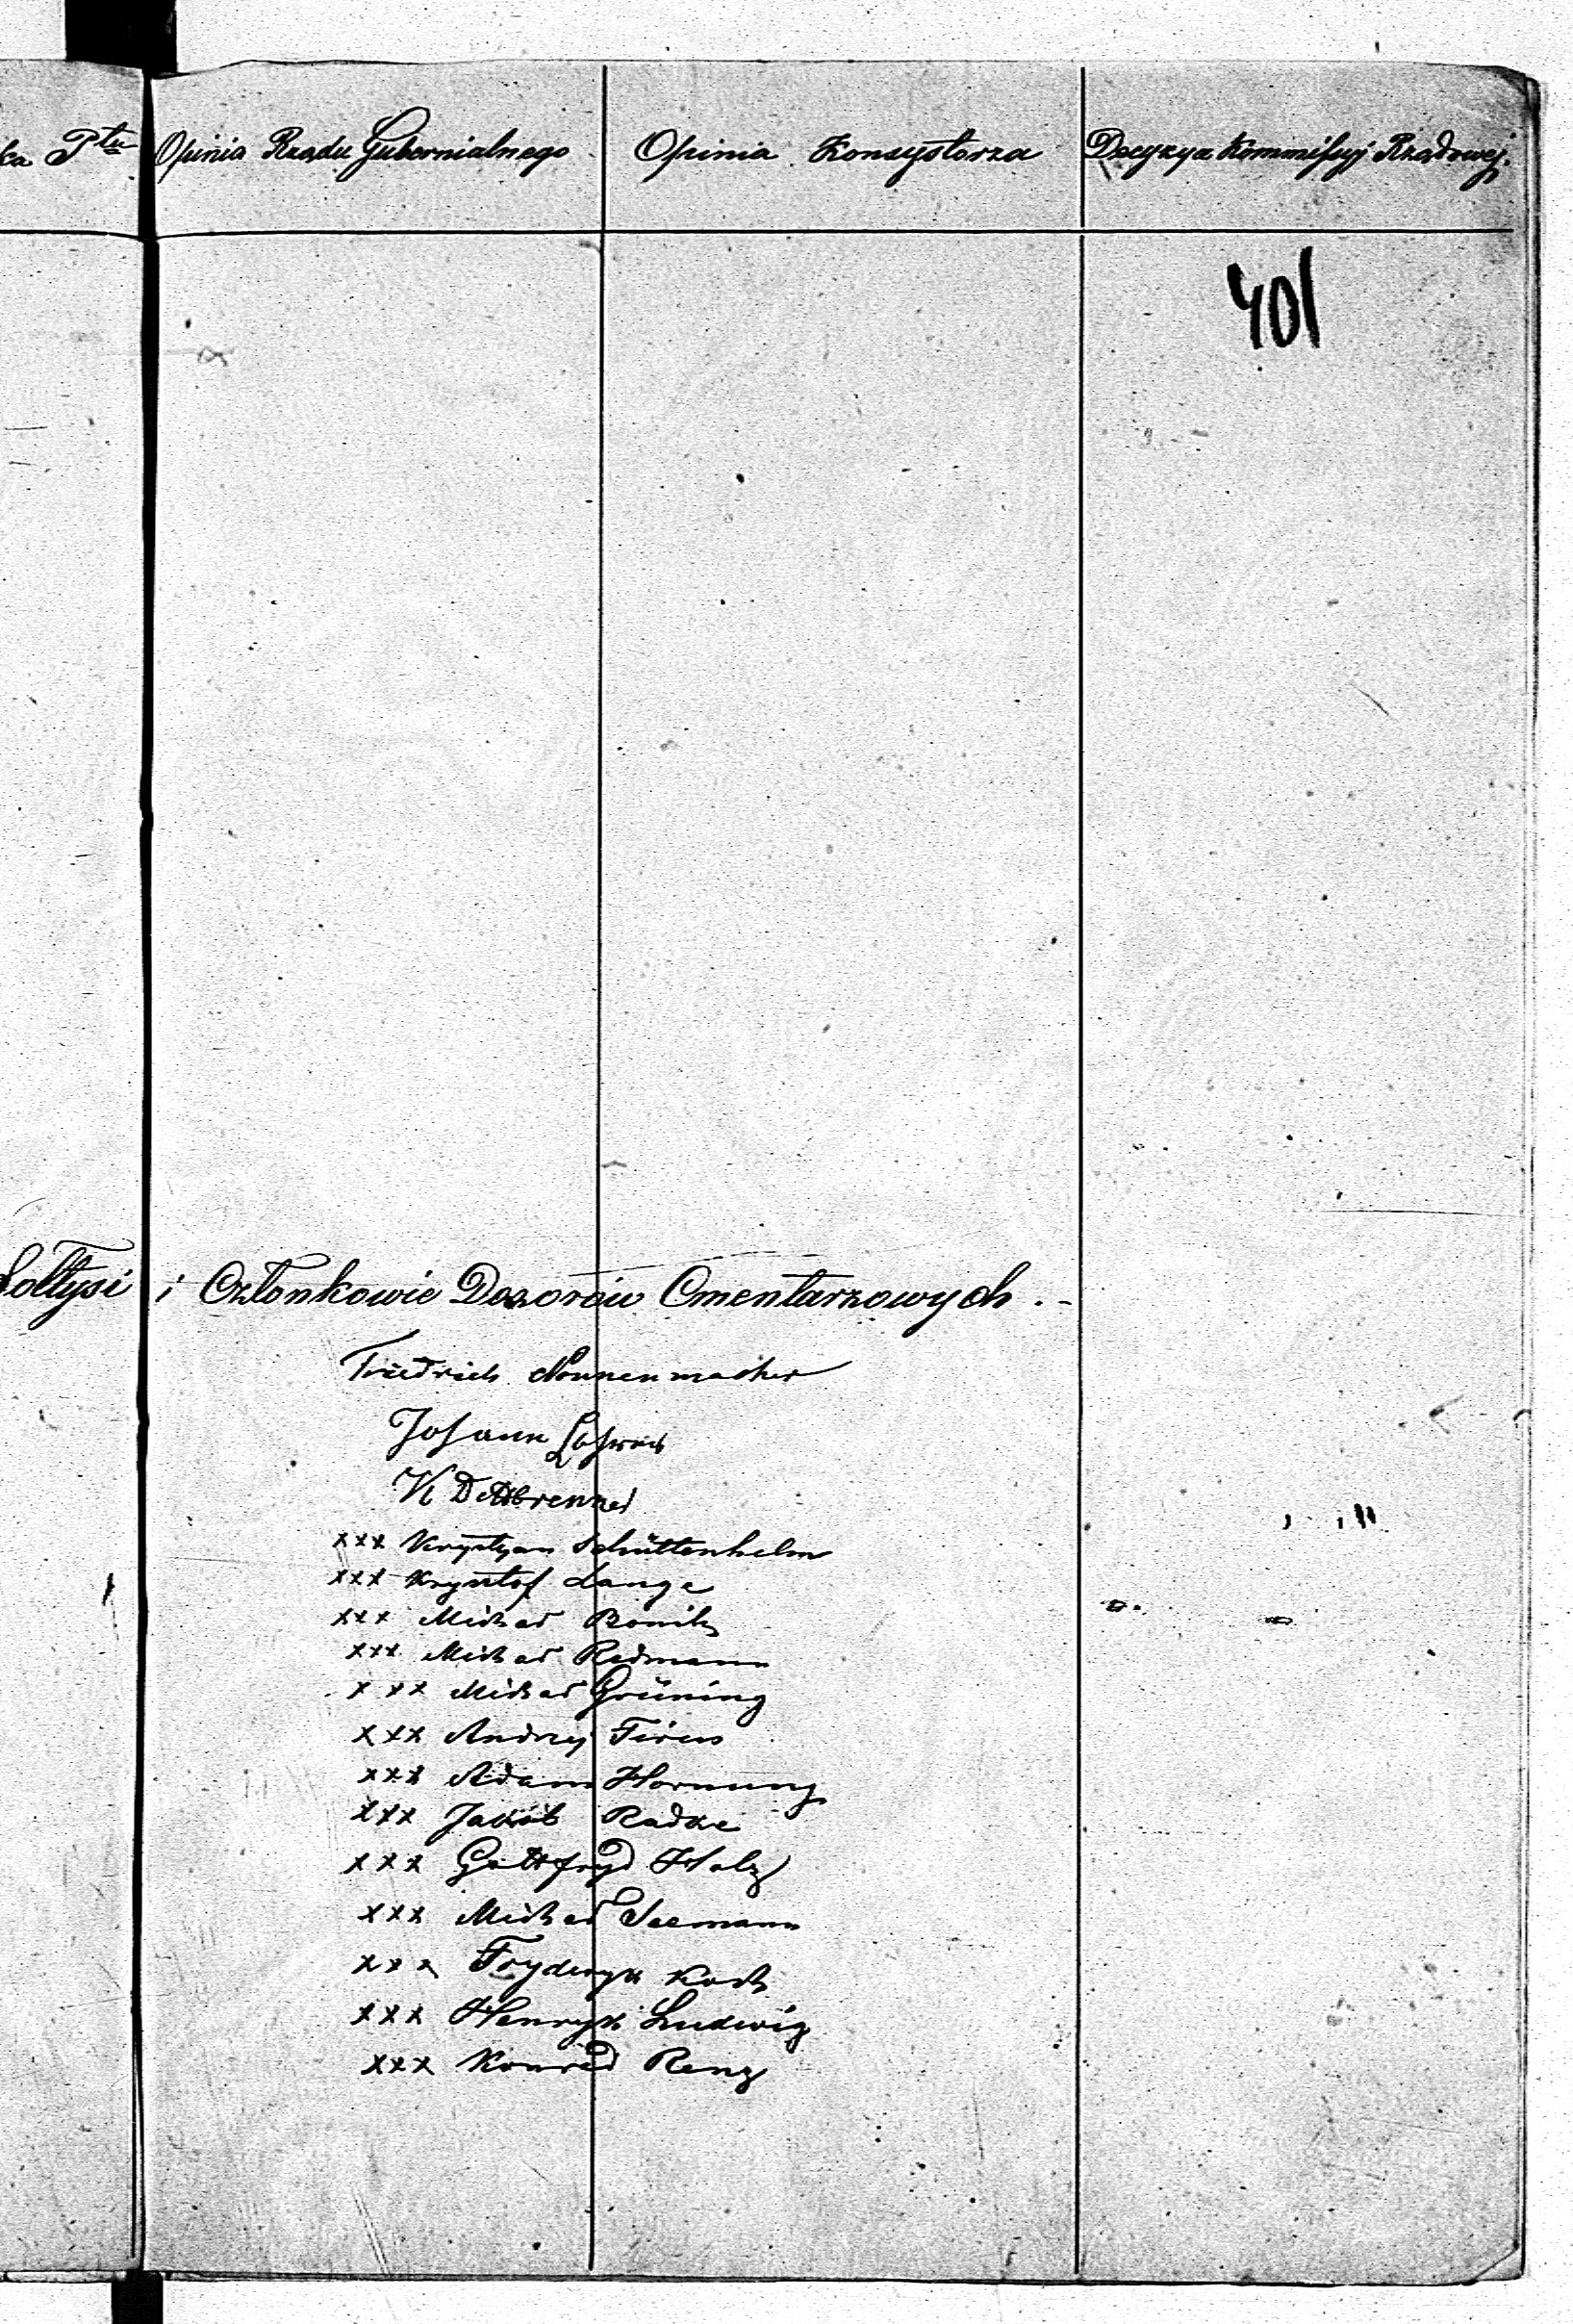 ka Ptu Opinia Rządu Gubernialnego Opinia Konsystorza Decyzya Kommissyj Rządowej.
401
Sołtysi i Członkowie Dozorów Cmentarzowych.-
Friedrich Nonnenmacher
Johann
K Dettbrenner
xxx Krystyan Schüttenhelm
xxx Krysztof Lange
xxx Michał Bonik
xxx Michał Redmann
xxx Michał Grüning
xxx Andrzej Firus
xxx Adam Hornung
xxx Jakób Radke
xxx Gottfryd Holz
xxx Michał Seemann
xxx Fryderyk Koch
xxx Henryk Ludwig
xxx Konrad Renz